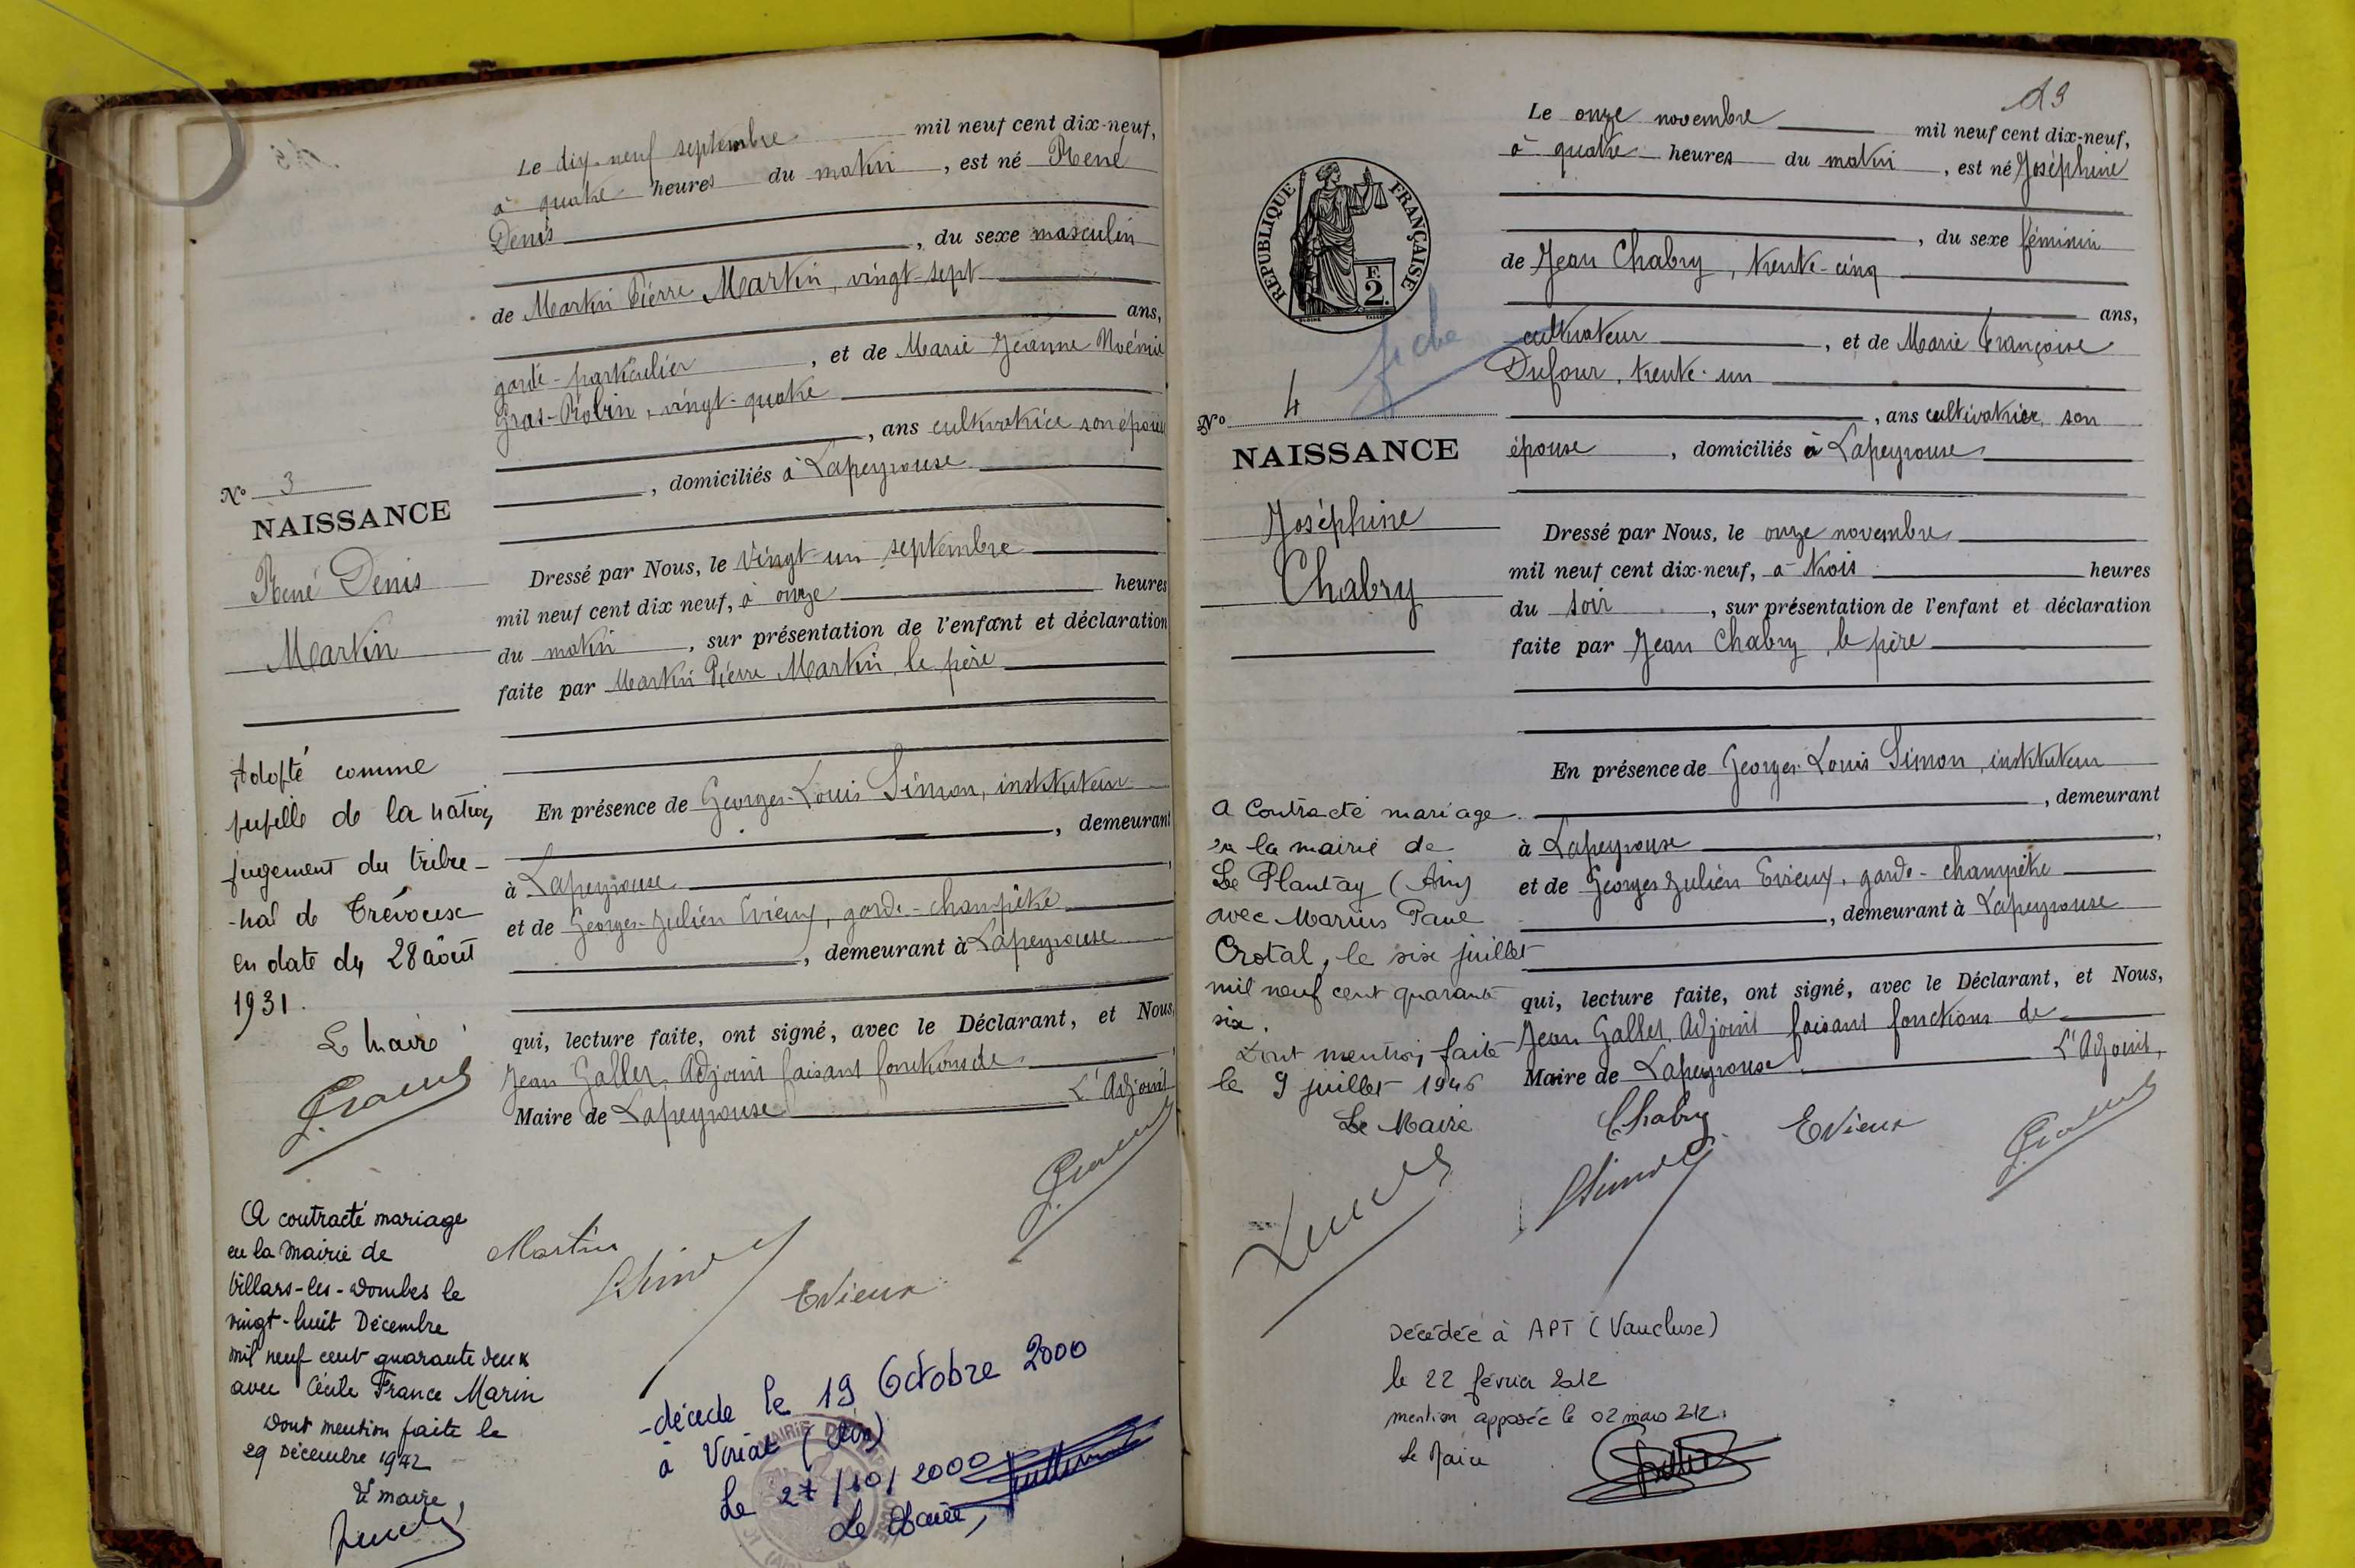 Le dix-neuf septembre mil neuf cent dix-neuf,
à quatre heures du matin, est né René
Denis, du sexe masculin
de Martin Pierre Martin, vingt-sept
ans,
garde-particulier, et de Marie Jeanne Noémie
Gras-Robin, vingt-quatre
, ans cultivatrice son épouse
, domiciliés à Lapeyrouse
No 3
NAISSANCE
René Denis
Martin
Dressé par Nous, le vingt-un septembre
mil neuf cent dix neuf, à onze heures
du matin, sur présentation de l'enfant et déclaration
faite par Martin Pierre Martin, le père
En présence de Georges-Louis Simon, instituteur
, demeurant
à Lapeyrouse,
et de Georges-Julien Evieux, garde-champêtre
, demeurant à Lapeyrouse
qui, lecture faite, ont signé, avec le Déclarant, et Nous,
Jean Gallet, Adjoint faisant fonctions de
Maire de Lapeyrouse L'Adjoint
Martin
Evieux
Adopté comme
pupille de la nation
jugement du tribu-
-nal de Trévoux
en date du 28 août
1931.
Le Maire
A contracté mariage
en la Mairie de
Villars-les-Dombes le
vingt-huit Décembre
mil neuf cent quarante deux
avec Cécile France Marin
Dont mention faite le
29 Décembre 1942
Le maire,
-décédé le 19 Octobre 2000
à Viriat (Ain)
Le 27/10/2000
Le Maire,
19
Le onze novembre mil neuf cent dix-neuf,
à quatre heures du matin, est né Joséphine
, du sexe féminin
de Jean Chabry, trente-cinq
ans,
cultivateur, et de Marie Françoise
Dufour, trente-un
, ans cultivatrice, son
épouse, domiciliés à Lapeyrouse
REPUBLIQUE FRANÇAISE
F.
2.
fiche
No 4
NAISSANCE
Joséphine
Chabry
Dressé par Nous, le onze novembre
mil neuf cent dix-neuf, à trois heures
du soir, sur présentation de l'enfant et déclaration
faite par Jean Chabry, le père
En présence de Georges-Louis Simon, instituteur
, demeurant
à Lapeyrouse,
et de Georges Julien Evieux, garde-champêtre
, demeurant à Lapeyrouse
qui, lecture faite, ont signé, avec le Déclarant, et Nous,
Jean Gallet, Adjoint faisant fonctions de
Maire de Lapeyrouse. L'Adjoint,
Chabry
Evieux
A Contracté mariage
en la mairie de
Le Plantay (Ain)
avec Marius Paul
Crotal, le six juillet
mil neuf cent quarante
six.
Dont mention faite
le 9 juillet 1946
Le Maire
Décédée à APT (Vaucluse)
le 22 février 2012
mention apposée le 02 mars 2012.
Le Maire